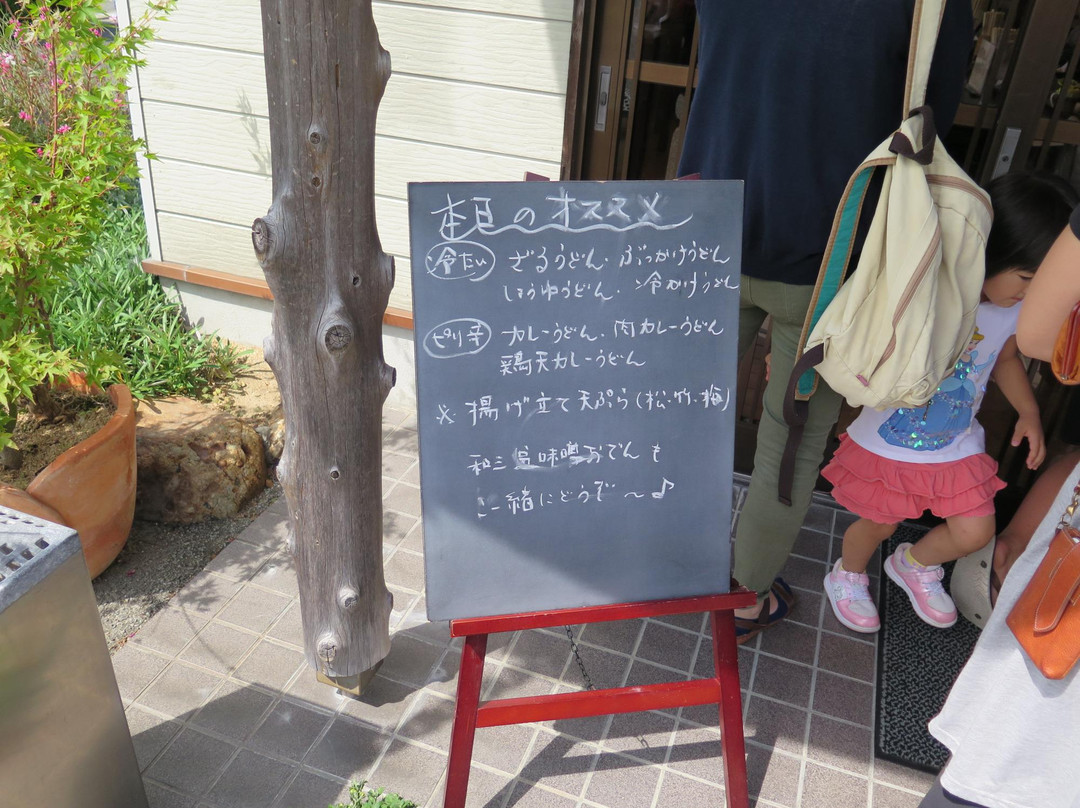 本日のオススメ
冷たい ざるうどん・ぶっかけうどん
しょうゆうどん・冷かけうどん
ピリ辛 カレーうどん・肉カレーうどん
鶏天カレーうどん
※揚げ立て天ぷら(松・竹・梅)
和三盆味噌おでんも
ご一緒にどうぞ〜♪